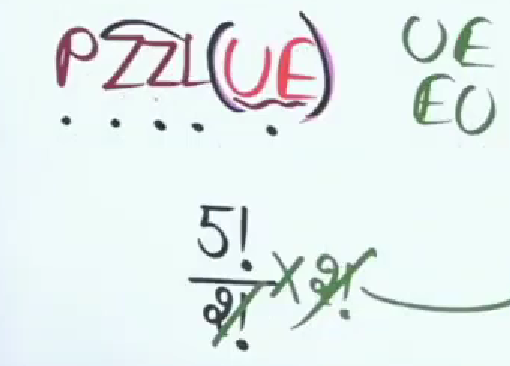 PZZL(UE) UE
EU
5!/2! × 2!